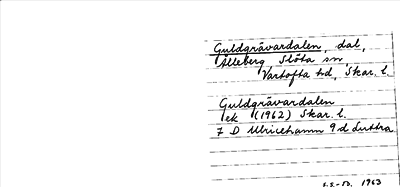 Guldgrävardalen, dal,
Ålleberg, Slöta sn,
Vartofta hd, Skar. l.
Guldgrävardalen
ek (1962) Skar. l.
7 D Ulricehamn 9 d Luttra
1963